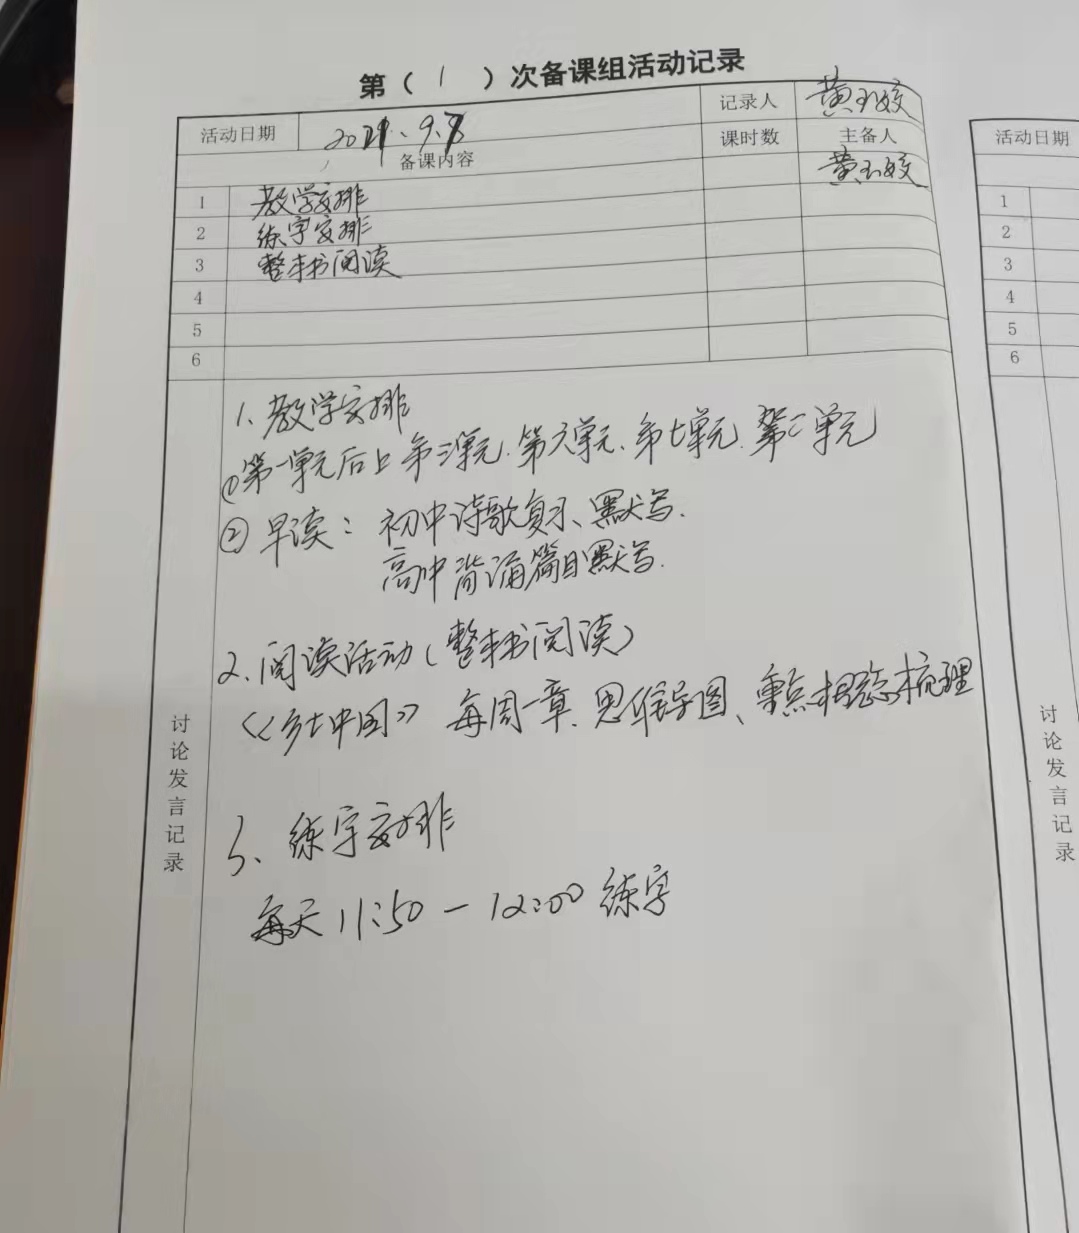 第（ 1 ）次备课组活动记录
活动日期 2021.9.7 记录人 黄玉姣
备课内容 课时数 主备人
黄玉姣
1 教学安排
2 练字安排
3 整本书阅读
4
5
6
1、教学安排
①第一单元后上第三单元、第六单元、第七单元、第二单元
②早读：初中诗歌复习、默写.
高中背诵篇目默写.
2、阅读活动（整本书阅读）
《乡土中国》 每周一章、思维导图、重点概念梳理
3、练字安排
每天11:50－12:00 练字
讨论发言记录
活动日期
1
2
3
4
5
6
讨论发言记录